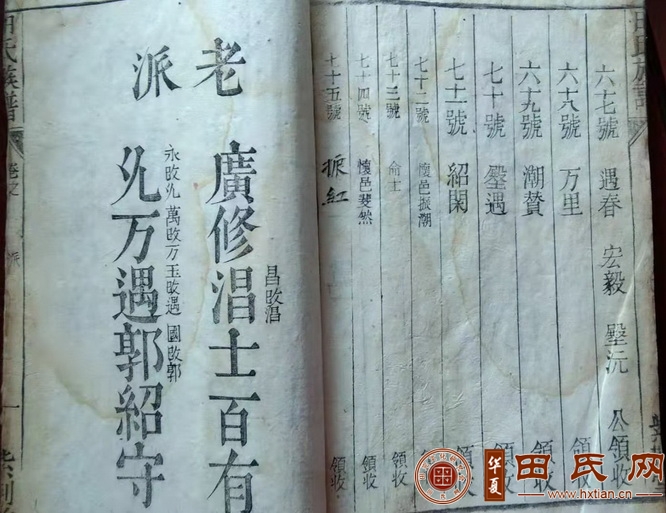 六十七號 遇春 宏毅 琞沅 公領收
六十八號 万里 領收
六十九號 潮贊 領收
七十號 琞遇 領收
七十一號 紹閑 領收
七十二號 懷邑振潮 領收
七十三號 侖士 領收
七十四號 懷邑斐然 領收
七十五號 振紅 領收
老派
廣修淐士百有
昌改淐
永改𠃔 萬改万 玉改遇 國改郭
万遇郭紹守
田氏族譜
卷之
派
一
田氏族譜
華夏
田氏网
www.hxtian.cn